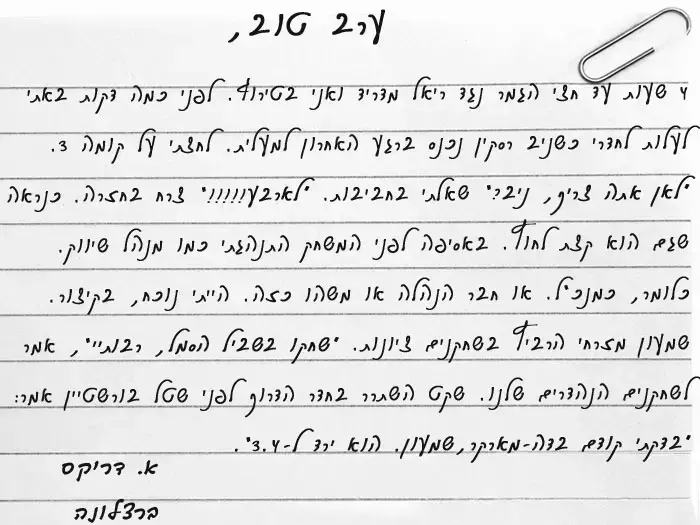 ערב טוב,
4 שעות עד חצי הגמר נגד ריאל מדריד ואני בטירוף. לפני כמה דקות באתי
לעלות לחדרי כשניב רסקין נכנס ברגע האחרון למעלית. לחצתי על קומה 3.
"לאן אתה צריך, ניב?" שאלתי בחביבות. "לארבעווווו!" צרח בחזרה. כנראה
שגם הוא קצת לחוץ. באסיפה לפני המשחק התנהגתי כמו מנהל שיווק.
כלומר, כמנכ"ל. או חבר הנהלה או משהו כזה. הייתי נוכח, בקיצור.
שמעון מזרחי הרביץ בשחקנים ציונות. "שחקו בשביל הסמל, רבותיי", אמר
לשחקנים הנהדרים שלנו. שקט השתרר בחדר הדרוך לפני שטל בורשטיין אמר:
"בדקתי קודם בדה-מארקר, שמעון. הוא ירד ל-3.4".
א. דריקס
ברצלונה